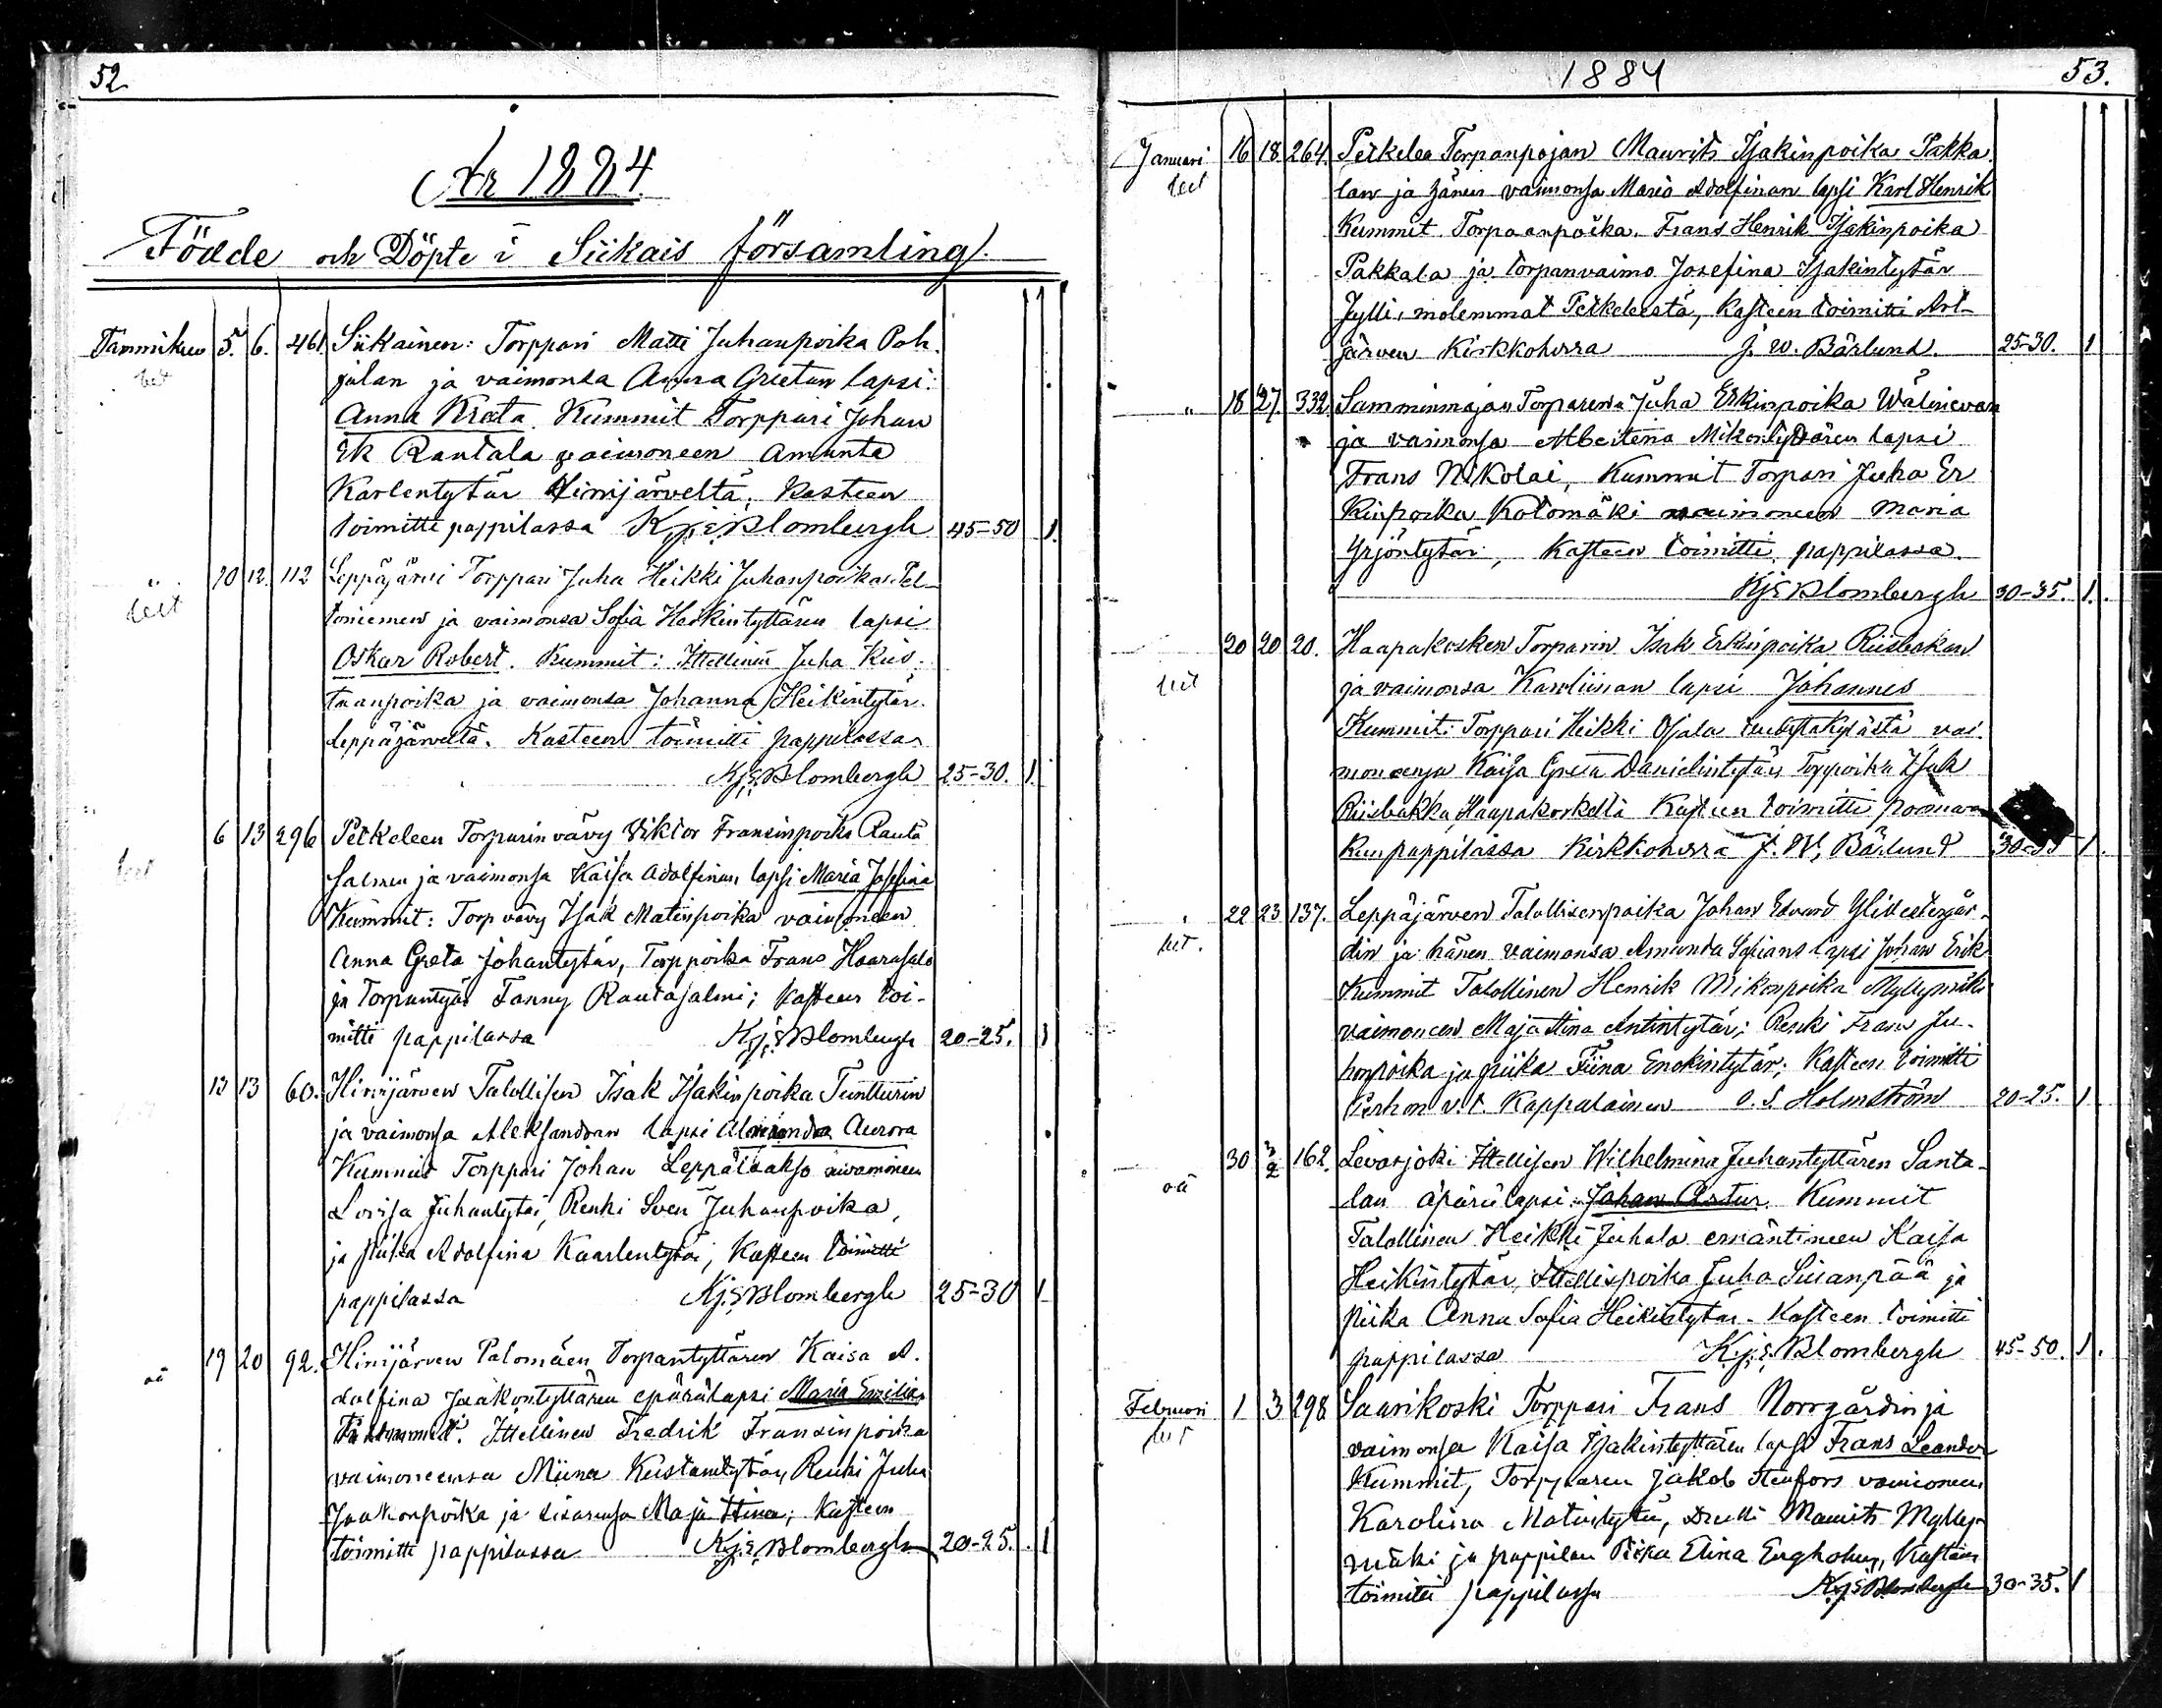 52
År 1884.
Födde och Döpte i Siikais församling.
Tammikuu 5. 6. 461. Siikainen: Torppari Matti Juhanpoika Poh-
jalan ja vaimonsa Anna Greetan lapsi:
Anna Kreta. Kummit Torppari Johan
Ek Rantala vaimoneen Amanta
Karlentytär Hirvijärveltä; Kasteen
toimitti pappilassa Kj. E. Blombergh 45-50 1.
" 10 12. 112 Leppäjärvi Torppari Juha Heikki Juhanpoika Pel-
toniemen ja vaimonsa Sofia Heikintyttären lapsi
Oskar Robert. Kummit: Itellinen Juha Kus-
taanpoika ja vaimonsa Johanna Heikintytär
leppäjärveltä. Kasteen toimitti pappilassa
Kj. E. Blombergh 25-30. 1.
6 13 296 Petkeleen Torparin vävy Viktor Fransinpoika Rauta
salmen ja vaimonsa Kaisa Adolfinan lapsi Maria Josefina
Kummit: Torp vävy Isak Matinpoika vaimoneen
Anna Greta Johantytär, Torppoika Frans Haarasalo
ja Torpantytär Fanny Rautasalmi; Kasteen toi-
mitti pappilassa Kj. E. Blombergh 20-25. 1
13 13 60. Hirvijärven Talollisen Isak Isakinpoika Tuntturin
ja vaimonsa Aleksandran lapsi Aurora
Kummit Torppari Johan Leppälaakso vaimoneen
Lovisa Juhantytär, Renki Sven Juhanpoika,
ja piika Adolfina Kaarlentytär; Kasteen toimitti
pappilassa Kj. E. Blombergh 25-30 1
oä 19 20 92. Hirvijärven Palomäen Torpantyttären Kaisa A-
dolfina Jaakontyttären epärälapsi Maria Emilia
Kummit. Itellinen Fredrik Fransinpoika
vaimoneensa Miina Kustaantytär, Renki Juha
Jaakonpoika ja sisarensa Maja Stina; Kasteen
toimitti pappilassa Kj. E. Blombergh 20-25. 1
1884
53.
Januari 16 18 264. Petkelen Torpanpojan Maurits Isakinpoika Pakka
lan ja hänen vaimonsa Maria Adolfinan lapsi Karl Henrik
Kummit. Torpaanpoika. Frans Henrik Isakinpoika
Pakkala ja torpanvaimo Josefina Isakintytär
Jylli, molemmat Petkeleestä, Kasteen toimitti Art-
järven Kirkkoherra J. W. Bärlund. 25-30. 1
" 18 27 332. Samminmajan Torparin Juha Erkinpoika Wälinevan
ja vaimonsa Albertena Mikontyttären lapsi
Frans Nikolai, Kummit Torpari Juha Er
kinpoika Kotomäki vaimoneen Maria
Yrjöntytär, Kasteen toimitti pappilassa.
Kj. E. Blombergh 30-35. 1.
20 20 20. Haapakosken Torparin Isak Erkinpoika Riisbakan
ja vaimonsa Karoliinan lapsi Johannes
Kummit: Torppari Heikki Ojala vai-
moneensa Kaisa Greta Danielintytär, Torppoika Isak
Riisbakka Haapakoskelta Kasteen toimitti
pappilassa Kirkkoherra J. W. Bärlund 30-35 1.
" 22 23 137. Leppäjärven Talollisenpoika Johan Edvard
din ja hänen vaimonsa Amanda Sofians lapsi Johan Erik
Kummit Talollinen Henrik Mikonpoika Myllymäki
vaimoneen Maja Stina Antintytär; Renki Frans Ju-
honpoika ja piika Fiina Enokintytär; Kasteen toimitti
v.t. Kappalainen O. S. Holmström 20-25. 1
oä 30 3/2 162. Levasjoki Itellisen Wilhelmina Juhantyttären Santa-
lan äpärälapsi: Johan Artur. Kummit
Talollinen Heikki Juhala emäntineen Kaisa
Heikintytär, Itellispoika Juha Suianpää ja
piika Anna Sofia Heikintytär. Kasteen toimitti
pappilassa Kj. E. Blombergh 45-50. 1.
Februari 1 3 298 Saarikoski Torppari Frans Norrgårdin ja
vaimonsa Kaisa Isakintyttären lapsi Frans Leander
Kummit, Torpparen Jakob Stenfors vaimoneen
Karolina Matintytär, Maurits Mylly-
mäki ja pappilan Piika Elina Engholm, Kasteen
toimitti pappilassa Kj. E. Blombergh 30-35. 1